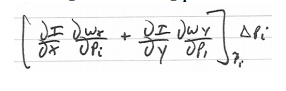 [ ∂I/∂x ∂wx/∂Pi + ∂I/∂y ∂wy/∂Pi ]_xi ΔPi